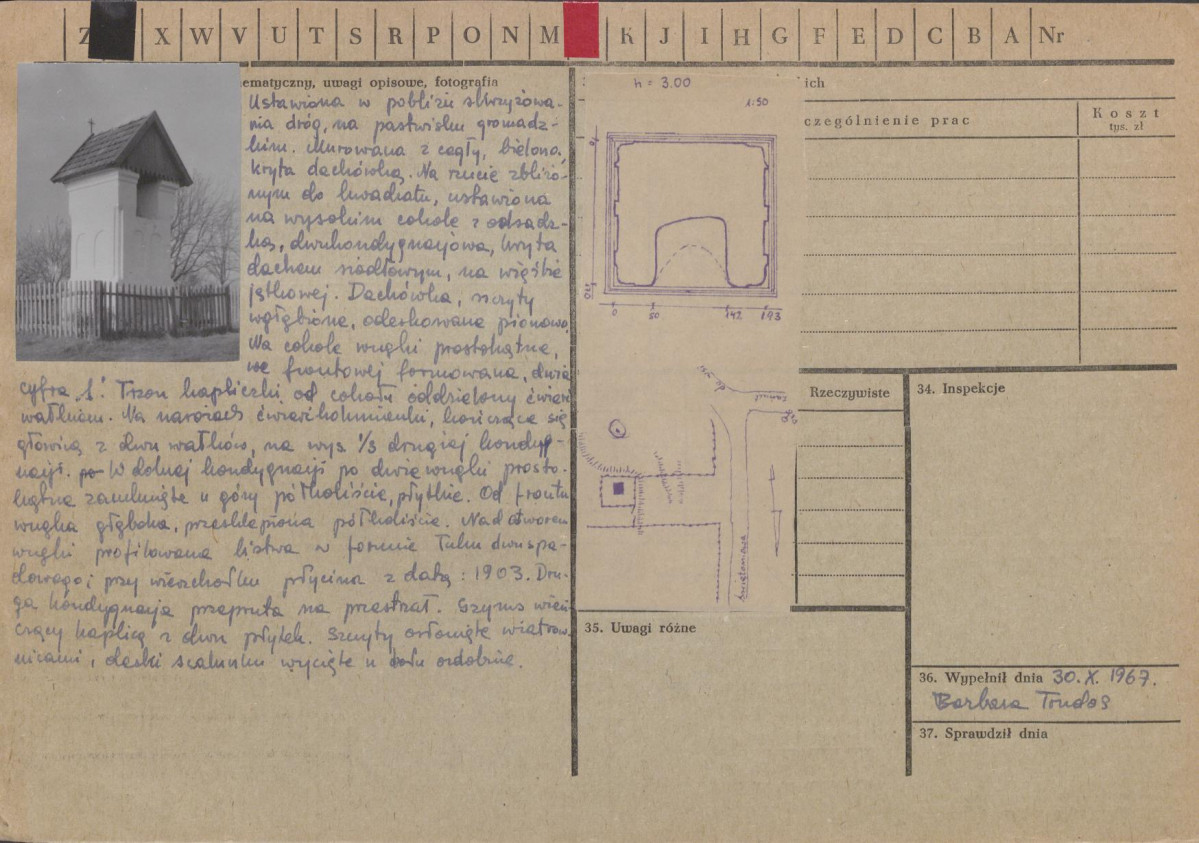 Z X W V U T S R P O N M K J I H G F E D C B A Nr
ematyczny, uwagi opisowe, fotografia
Ustawiona w pobliżu skrzyżowa-
nia dróg, na pastwisku gromadz-
kim. Murowana z cegły, bielona,
kryta dachówką. Na rzucie zbliżo-
nym do kwadratu, ustawiona
na wysokim cokole z odsadz-
ką, dwukondygnacjowa, kryta
dachem siodłowym, na więźbie
jętkowej. Dachówka, szczyty
wgłębione, odeskowane pionowo.
Na cokole wnęki prostokątne,
we frontowej formowana, duża
cyfra "1". Trzon kapliczki od cokołu oddzielony ćwierć
wałkiem. Na narożach ćwierćkolumienki, kończące się
głowicą z dwu wałków, na wys. 1/3 drugiej kondyg-
nacji. W dolnej kondygnacji po dwie wnęki prosto-
kątne zamknięte u góry półkoliście, płytkie. Od frontu
wnęka głęboka, przesklepiona półkoliście. Nad otworem
wnęki profilowana listwa w formie łuku dwuspa-
dowego; przy wierzchołku płycina z datą: 1903. Dru-
ga kondygnacja przepruta na przestrzał. Gzyms wień
czący kaplicę z dwu płytek. Szczyty osłonięte wiatrow-
nicami, deski szalunku wycięte u dołu ozdobnie.
h = 3.00
1:50
0 50 142 193
ich
czególnienie prac
Koszt
tys. zł
Rzeczywiste
34. Inspekcje
35. Uwagi różne
36. Wypełnił dnia 30.X.1967.
Barbara Tondos
37. Sprawdził dnia